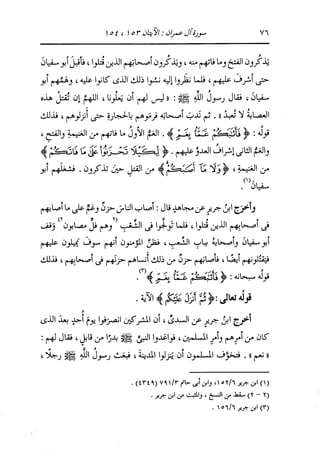 ٧٦ سورة آل عمران : الآيتان ١٥٣ ، ١٥٤
يذكرون الفتح وما فاتهم منه ، ويذكرون أصحابهم الذين قتلوا ، فأقبل أبو سفيان
حتى أشرف عليهم ، فلما نظروا إليه نسوا ذلك الذى كانوا عليه ، وهمهم أبو
سفيان ، فقال رسول الله ﷺ : « ليس لهم أن يعلونا ، اللهم إن تقتل هذه
العصابة لا تعبد » . ثم ندب أصحابه فرموهم بالحجارة حتى أنزلوهم ، فذلك
قوله : ﴿ فأثابكم غما بغم ﴾ . الغم الأول ما فاتهم من الغنيمة والفتح ،
والغم الثانى إشراف العدو عليهم . ﴿ لكيلا تحزنوا على ما فاتكم ﴾
من الغنيمة ، ﴿ ولا ما أصابكم ﴾ من القتل حين تذكرون . فشغلهم أبو
سفيان (١) .
وأخرج ابن جرير عن مجاهد قال : أصاب الناس حزن وغم على ما أصابهم
فى أصحابهم الذين قتلوا ، فلما تولجوا فى الشعب (٢ وهم فل مصابون ٢) وقف
أبو سفيان وأصحابه بباب الشعب ، فظن المؤمنون أنهم سوف يميلون عليهم
فيقتلونهم أيضا ، فأصابهم حزن من ذلك أنساهم حزنهم فى أصحابهم ، فذلك
قوله سبحانه : ﴿ فأثابكم غما بغم ﴾ (٣) .
قوله تعالى : ﴿ ثم أنزل عليكم ﴾ الآية .
أخرج ابن جرير عن السدى ، أن المشركين انصرفوا يوم أحد بعد الذى
كان من أمرهم وأمر المسلمين ، فواعدوا النبى ﷺ بدرا من قابل ، فقال لهم :
« نعم » . فتخوف المسلمون أن ينزلوا المدينة ، فبعث رسول الله ﷺ رجلا ،
(١) ابن جرير ١٥٢/٦ ، وابن أبى حاتم ٧٩١/٣ (٤٣٤٩) .
(٢ - ٢) سقط من النسخ ، والمثبت من ابن جرير .
(٣) ابن جرير ١٥٦/٦ .